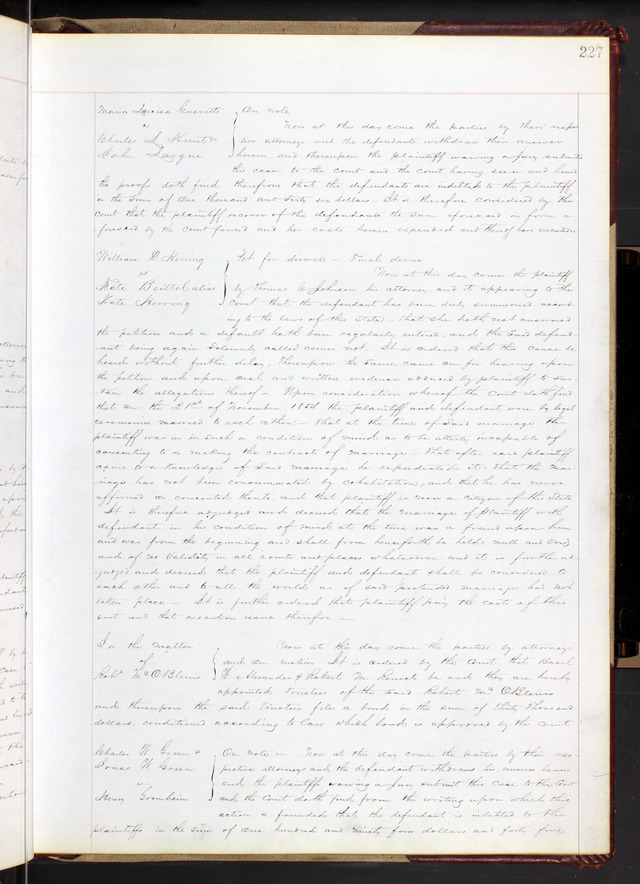 227
Maria Louisa Gnerotte } On note
vs Now at this day come the parties by their respec
Charles L. Hunt & tive attorneys and the defendants withdraw their answer
John Lazzue herein and thereupon the plaintiff waving a Jury submits
this case to the court and the court having seen and heard
the proofs doth find therefrom that the defendants are indebted to the plaintiff
in the sum of One thousand and sixty six dollars. It is therefore considered by the
court that the plaintiff recover of the defendants the sum aforesaid in form a
foresaid by the court found and her costs herein expended and thereof have execution
William D. Herring } Pet for divorce — Final decree
vs Now at this day comes the plaintiff
Kate Beittel alias by Thomas C Johnson his attorney, and it appearing to the
Kate Herring court that the defendant has been duly summoned accord-
ing to the laws of this State, — That she hath not answered
the petition and a default hath been regularly entered, and the said defend-
ant being again solemnly called comes not. It is ordered that this cause be
heard without further delay, Thereupon the same came on for hearing upon
the petition, and upon oral and written evidence adduced by plaintiff to sus-
tain the allegations thereof — Upon consideration whereof the Court doth find
that on the 21st of November 1884 the plaintiff and defendant were by legal
ceremonies married to each other; — That at the time of said marriage the
plaintiff was in such a condition of mind as to be utterly incapable of
consenting to or making the contract of marriage — That after said plaintiff
came to a knowledge of said marriage he repudiated it. That the mar-
riage has not been consummated by cohabitation, and that he has never
affirmed or consented thereto and that plaintiff is now a citizen of the State
It is therefore adjudged and decreed that the marriage of plaintiff with
defendant in his condition of mind at the time was a fraud upon him
and was from the beginning and shall from henceforth be held null and void
and of no validity in all courts and places whatsoever, and it is further ad-
judged and decreed that the plaintiff and defendant shall be considered to
each other and to all the world as if said pretended marriage had not
taken place — It is further ordered that plaintiff pay the costs of this
suit and that execution issue therefor —
In the Matter } Now at this day come the parties by attorneys
of and on motion It is ordered by the Court that Basil
Robt McO'Blenis W Alexander & Robert M. be and they are hereby
appointed trustees of the said Robert McO'Blenis
and thereupon the said trustees file a bond in the sum of Thirty Thousand
dollars, conditioned according to law which bond is approved by the court
Charles W. Green & } On note — Now at this day come the parties by their res
W Green pective attorneys and the defendant withdraws his answer herein
vs and the plaintiffs waving a Jury submit this case to the Court
Henry and the court doth find from the writing upon which this
action is founded that the defendant is indebted to the
plaintiffs in the sum of One hundred and Ninety four dollars and forty five